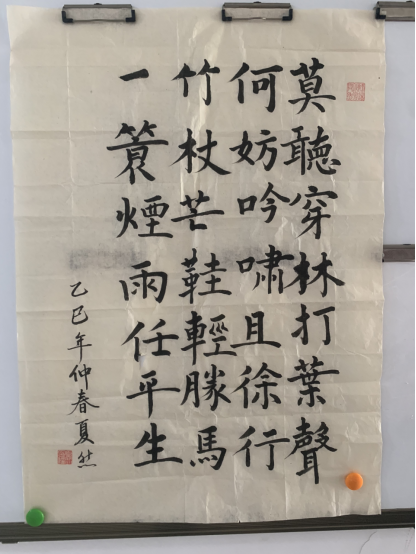 莫聽穿林打葉聲
何妨吟嘯且徐行
竹杖芒鞋輕勝馬
一蓑煙雨任平生
乙巳年仲春夏然